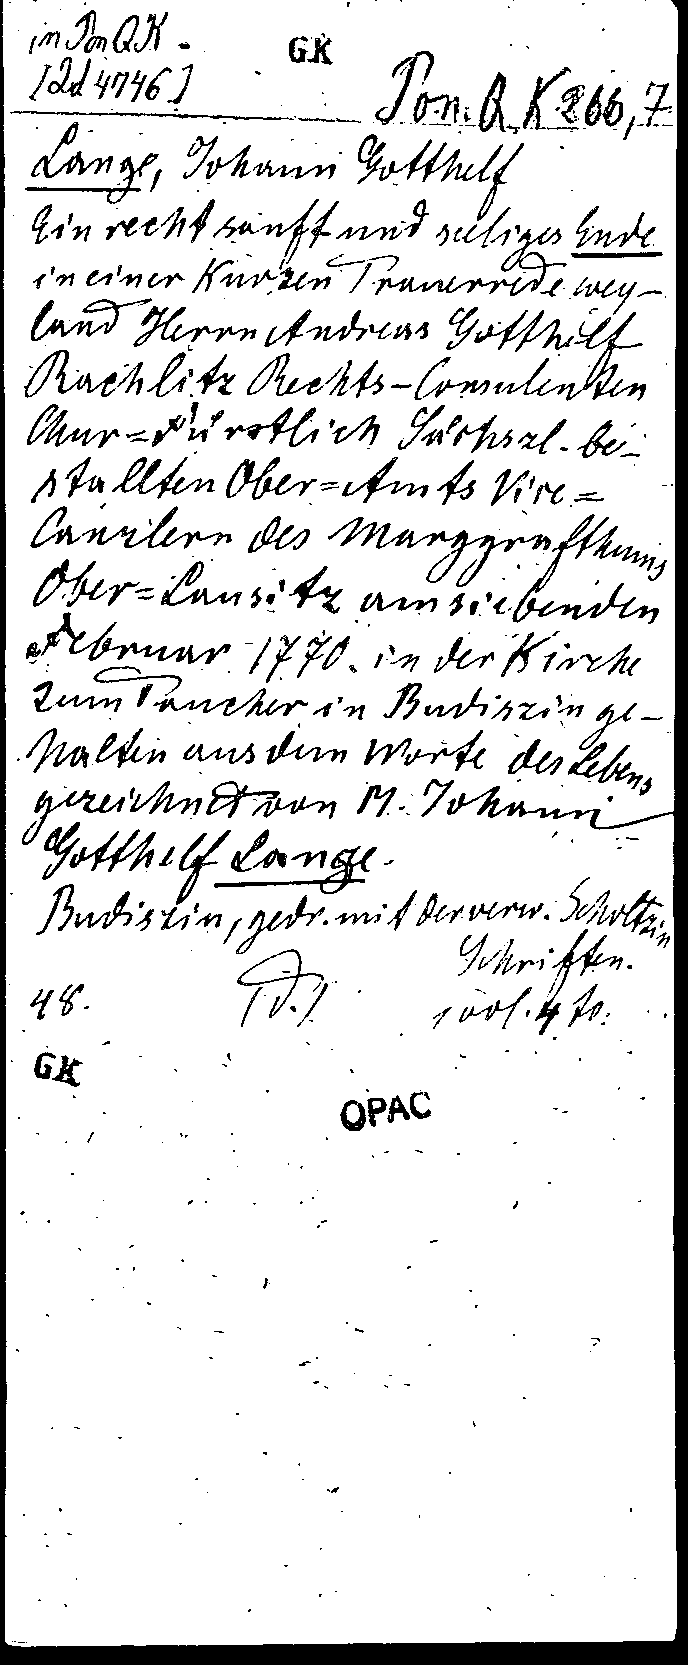 in Pon QK.
GK
[2d 4746]
Pon. QK 266,7
Lange, Johann Gotthelf
Ein recht sanft und seeliges Ende
in einer Kurzen Trauerrede wey-
land Herrn Andreas Gotthelf
Rachlitz Rechts-Consulenten
Chur=Fürstlich Sächszl. be-
stallten Ober=Amts Vice=
Canzlern des Marggrafthums
Ober=Lausitz am siebenden
Februar 1770. in der Kirche
zum Taucher in Budiszin ge-
halten aus dem Worte des Lebens
gezeichnet von M. Johann
Gotthelf Lange.
Budiszin, gedr. mit der verw. Scholtzin
Schriften.
48. 4to.
GK
OPAC